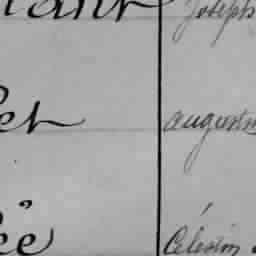 Joseph
et augustin
ée Célestin